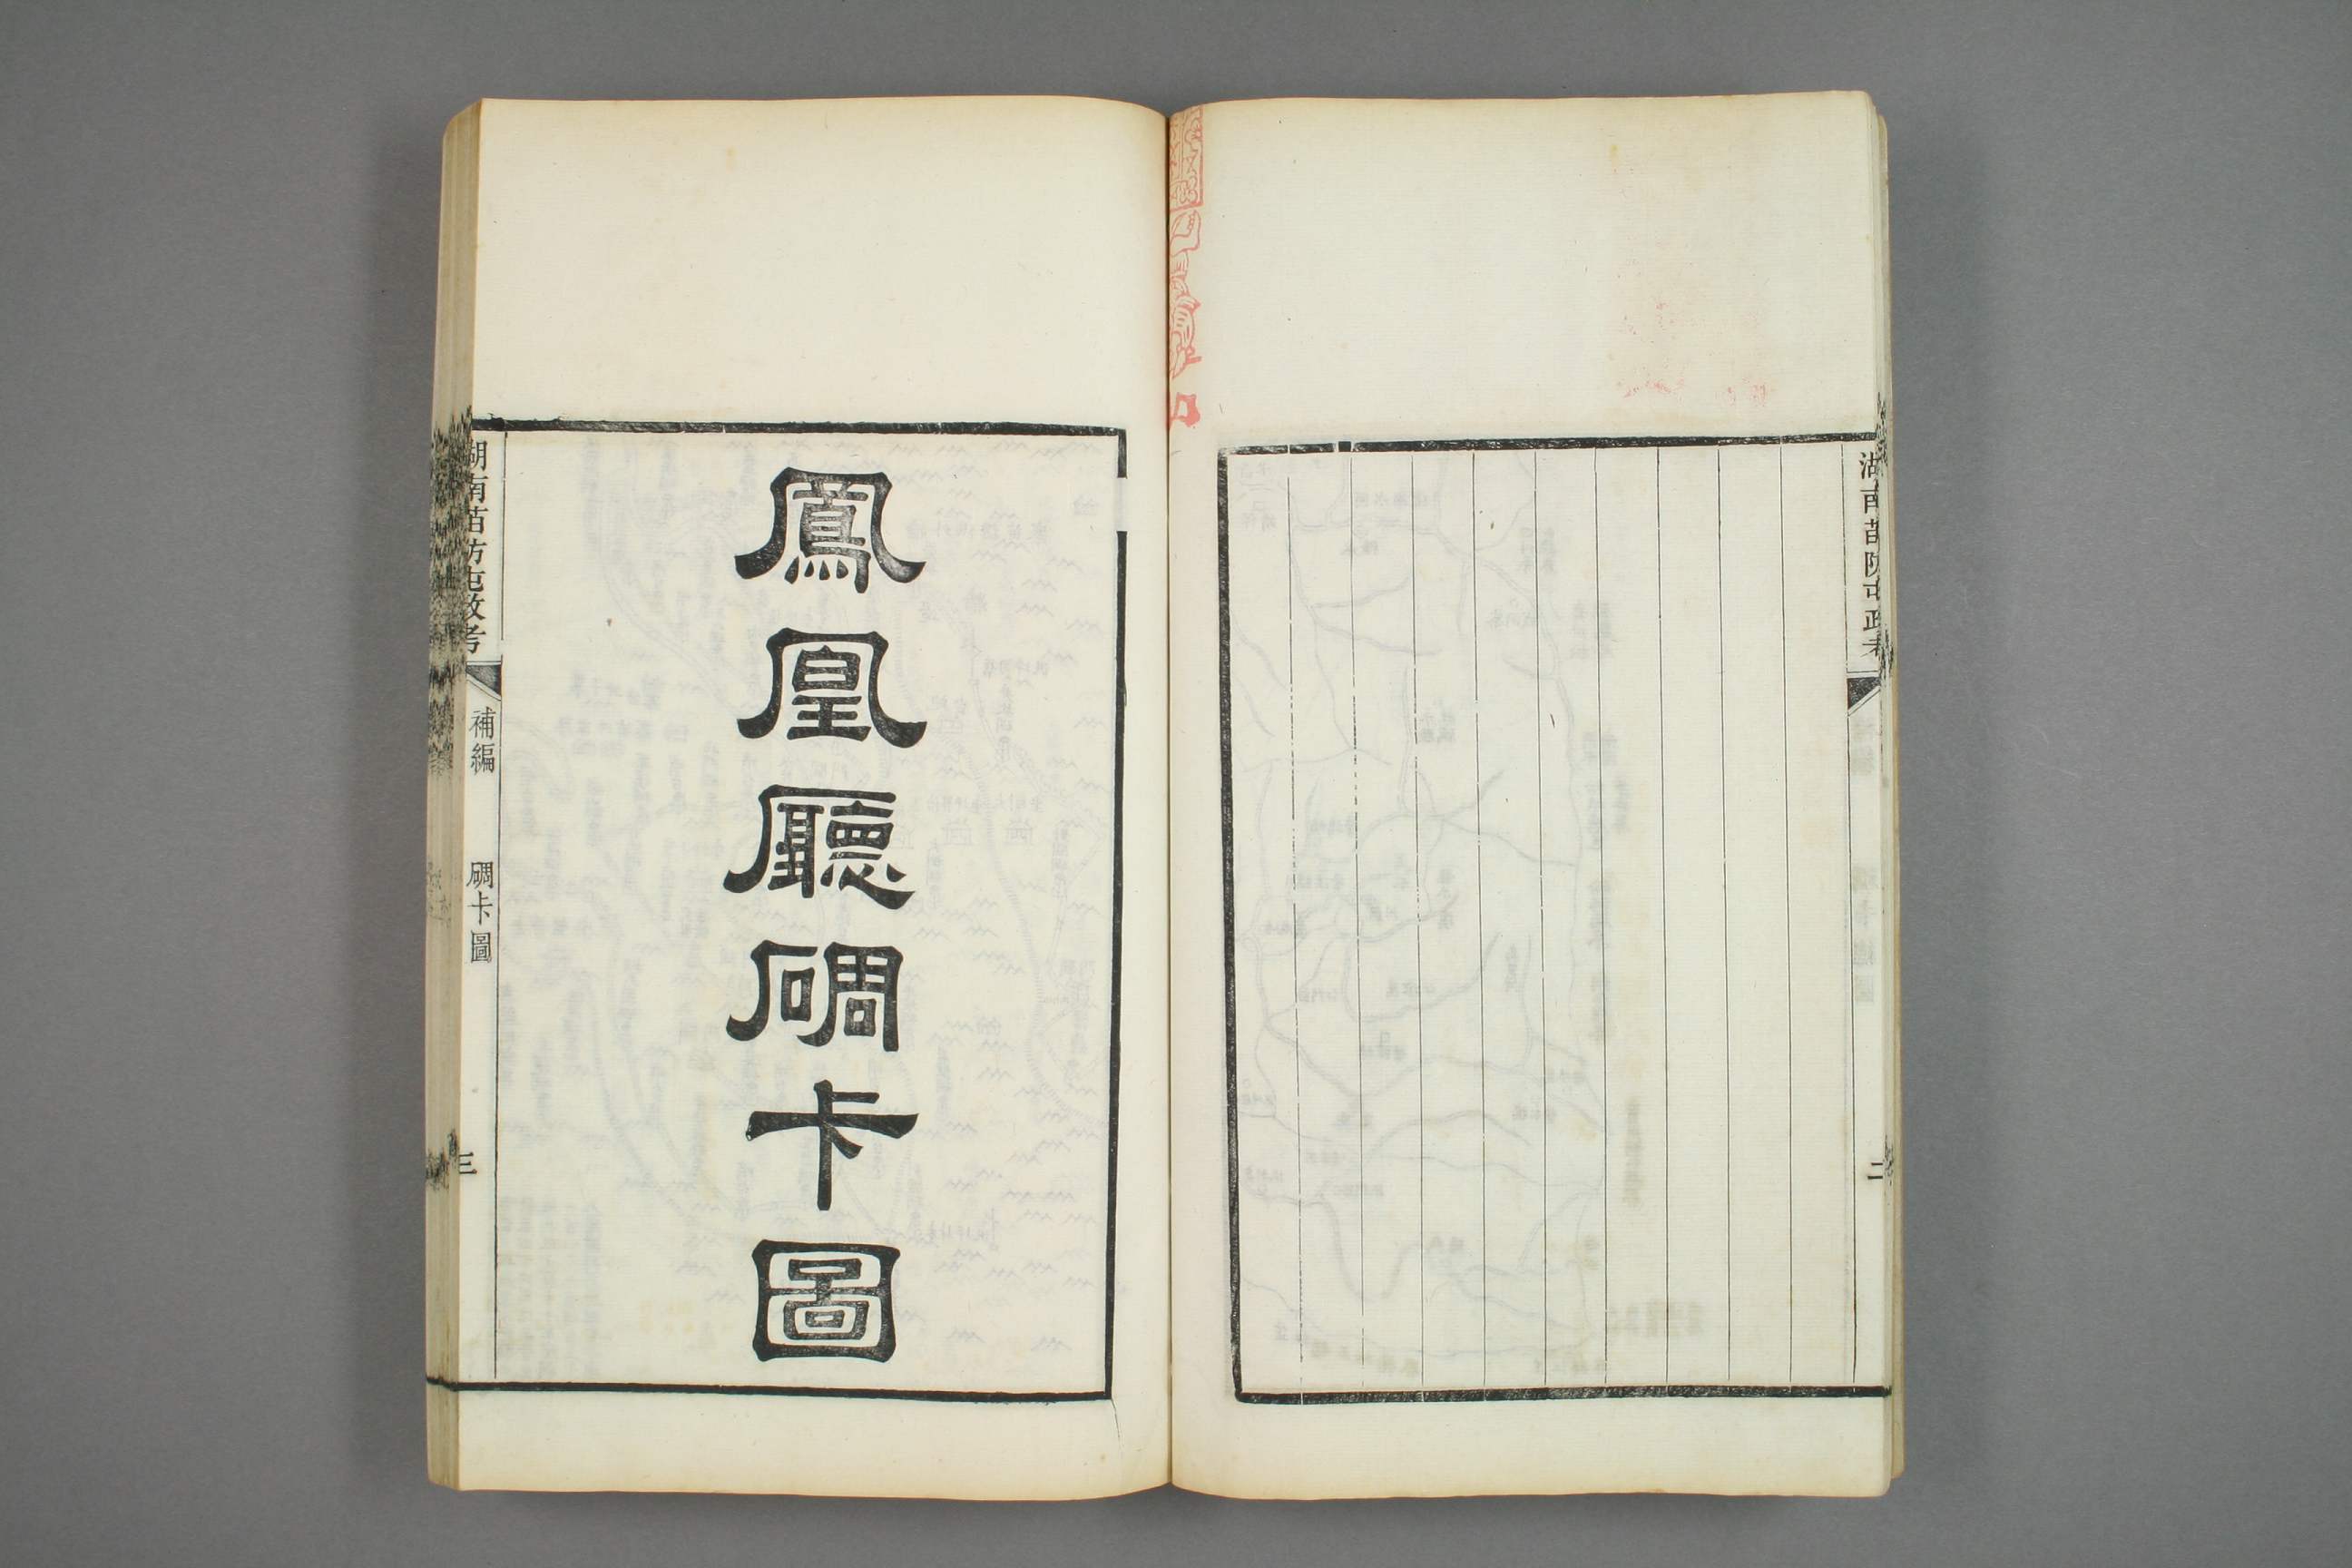 湖南苗防屯政考
二
鳳凰廳碉卡圖
湖南苗防屯政考
補編
碉卡圖
三